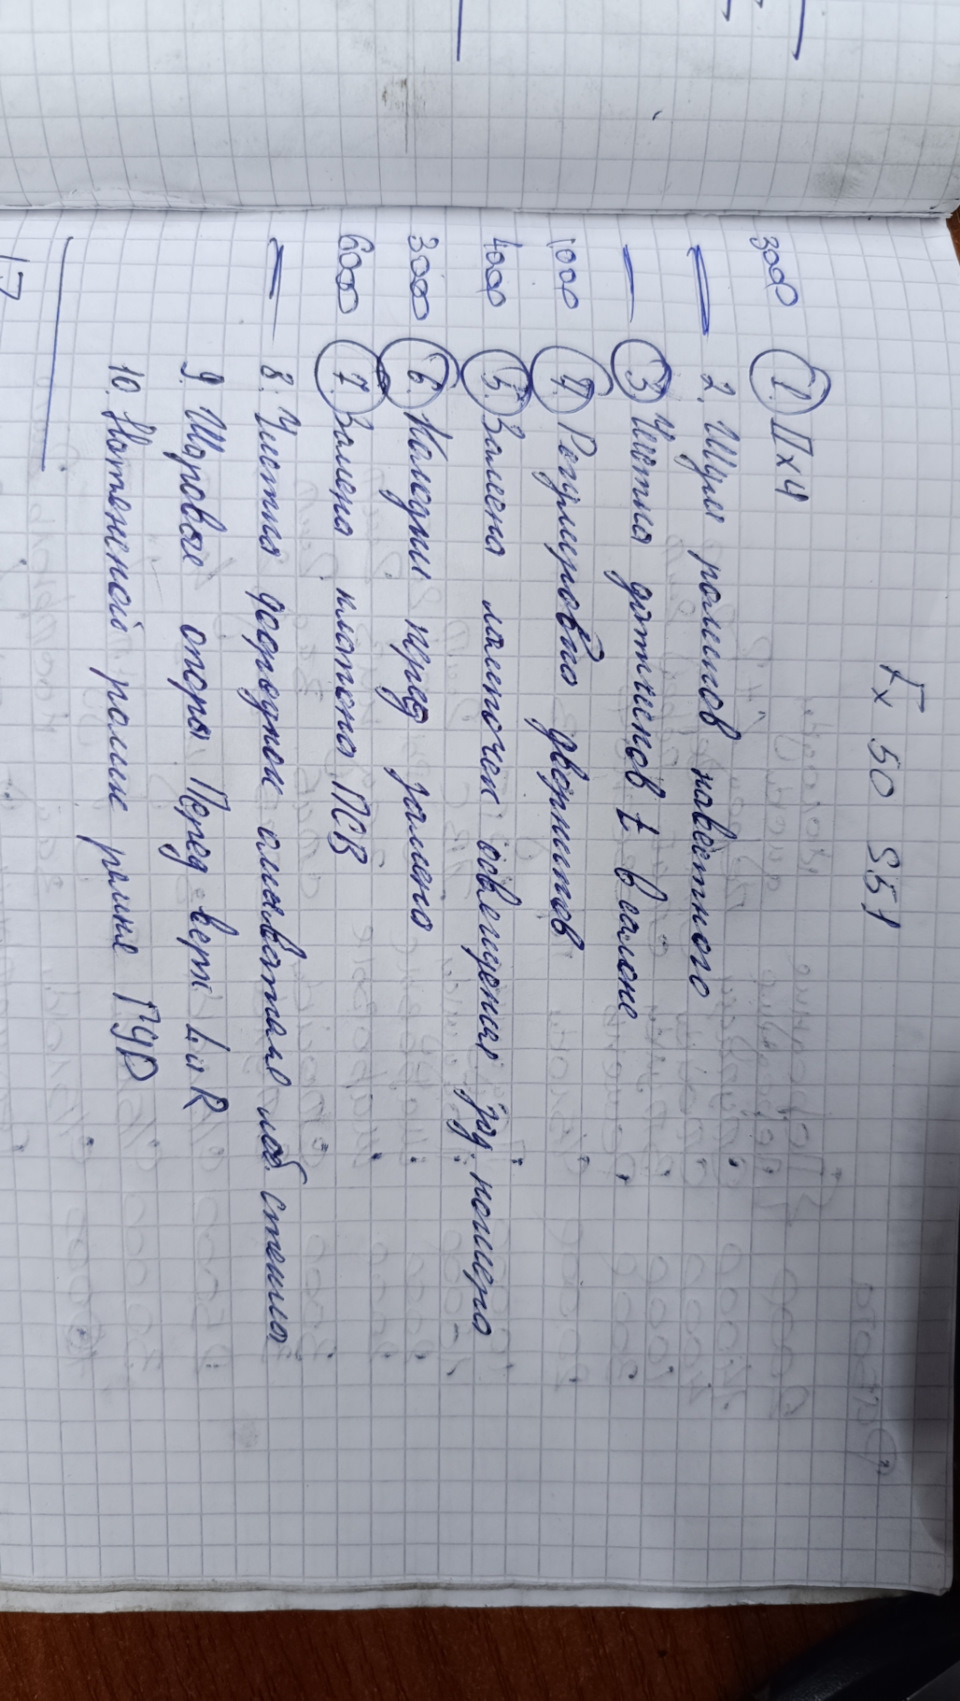 Fx 50 551
3000 1. ПХЧ
— 2. Шум роликов навесного
— 3. Чистка датчиков t в салоне
1000 4. Регулировка дворников
4000 5. Замена лампочек освещения зад. номера
3000 6. Колодки перед замена
6000 7. Замена клапана ПСВ
— 8. Чистка форсунок омывателя лоб. стекла
9. Шаровые опоры Перед верх L и R
10. Натяжной ролик ремня ГУР